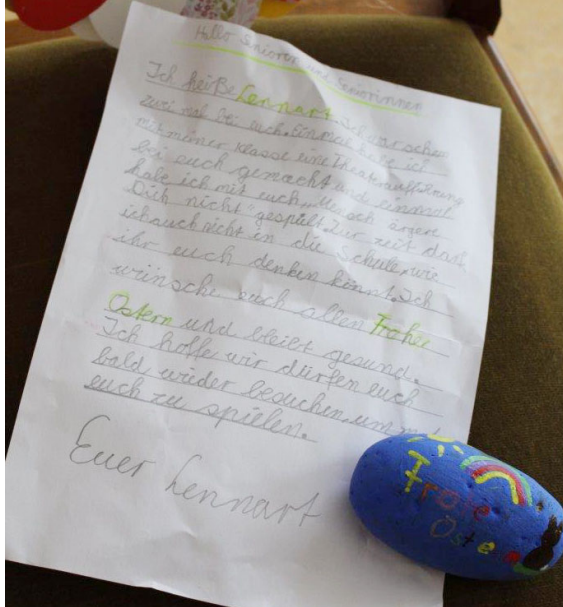 Hallo Senioren und Seniorinnen
Ich heiße Lennart. Ich war schon
zwei mal bei euch. Einmal habe ich
mit meiner Klasse eine Theateraufführung
bei euch gemacht und einmal
habe ich mit euch „Mensch ärgere
Dich nicht“ gespielt. Zur zeit darf
ich auch nicht in die Schule, wie
ihr euch denken könnt. Ich
wünsche euch allen Frohe
Ostern und bleibt gesund.
Ich hoffe wir dürfen euch
bald wieder besuchen, um
euch zu spielen.
Euer Lennart
Frohe
Ostern